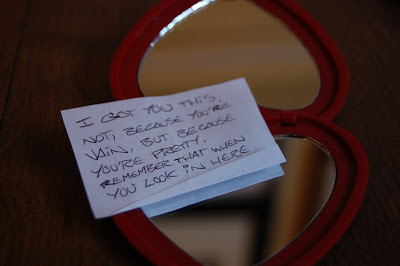 I GOT YOU THIS,
NOT, BECAUSE YOU'RE
VAIN, BUT BECAUSE
YOU'RE PRETTY.
REMEMBER THAT WHEN
YOU LOOK IN HERE